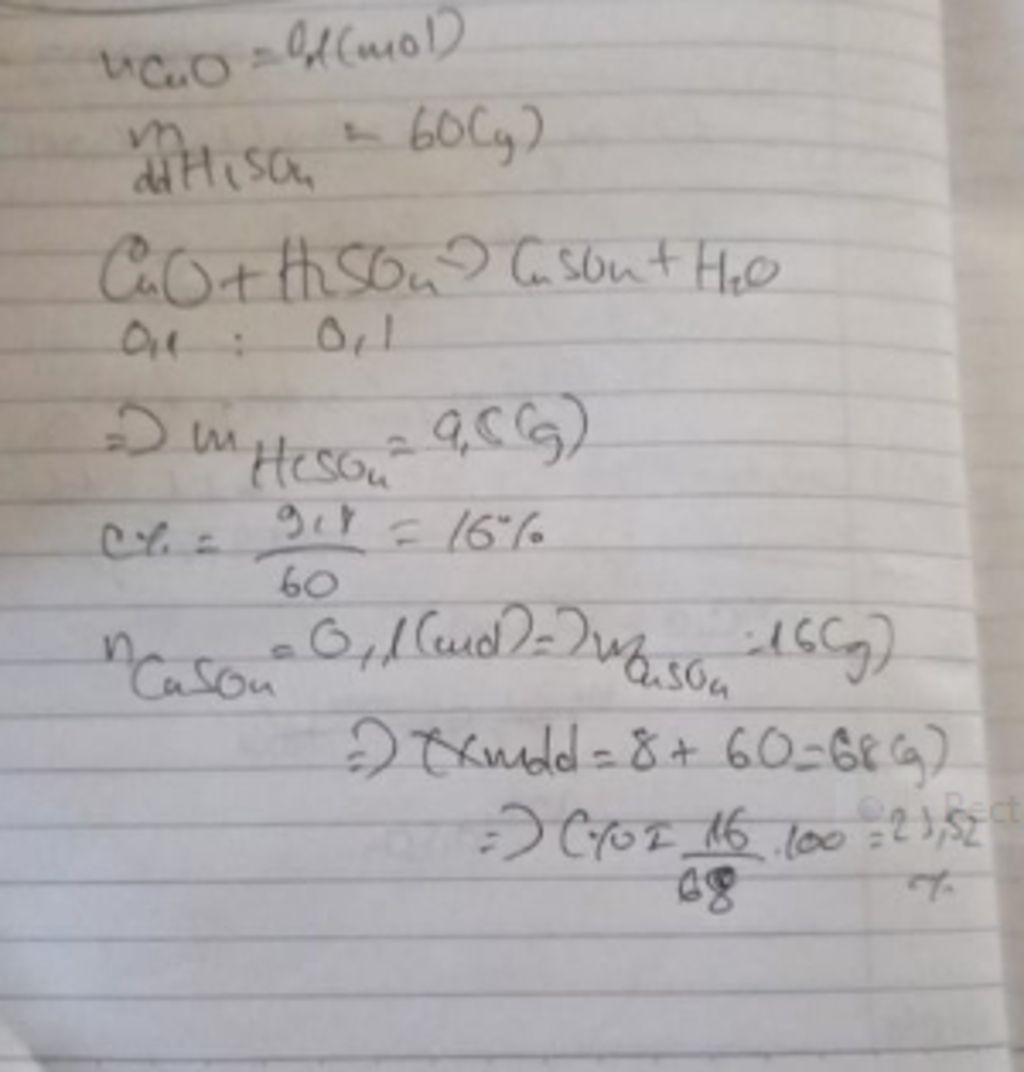 nCuO = 0,1(mol)
m ddH2SO4 = 60(g)
CuO + H2SO4 => CuSO4 + H2O
0,1 : 0,1
=> m H2SO4 = 9,8(g)
C% = 9,8/60 = 16%
nCuSO4 = 0,1(mol) => mCuSO4 = 16(g)
=> mdd = 8 + 60 = 68(g)
=> C% = 16/68 .100 = 23,52%